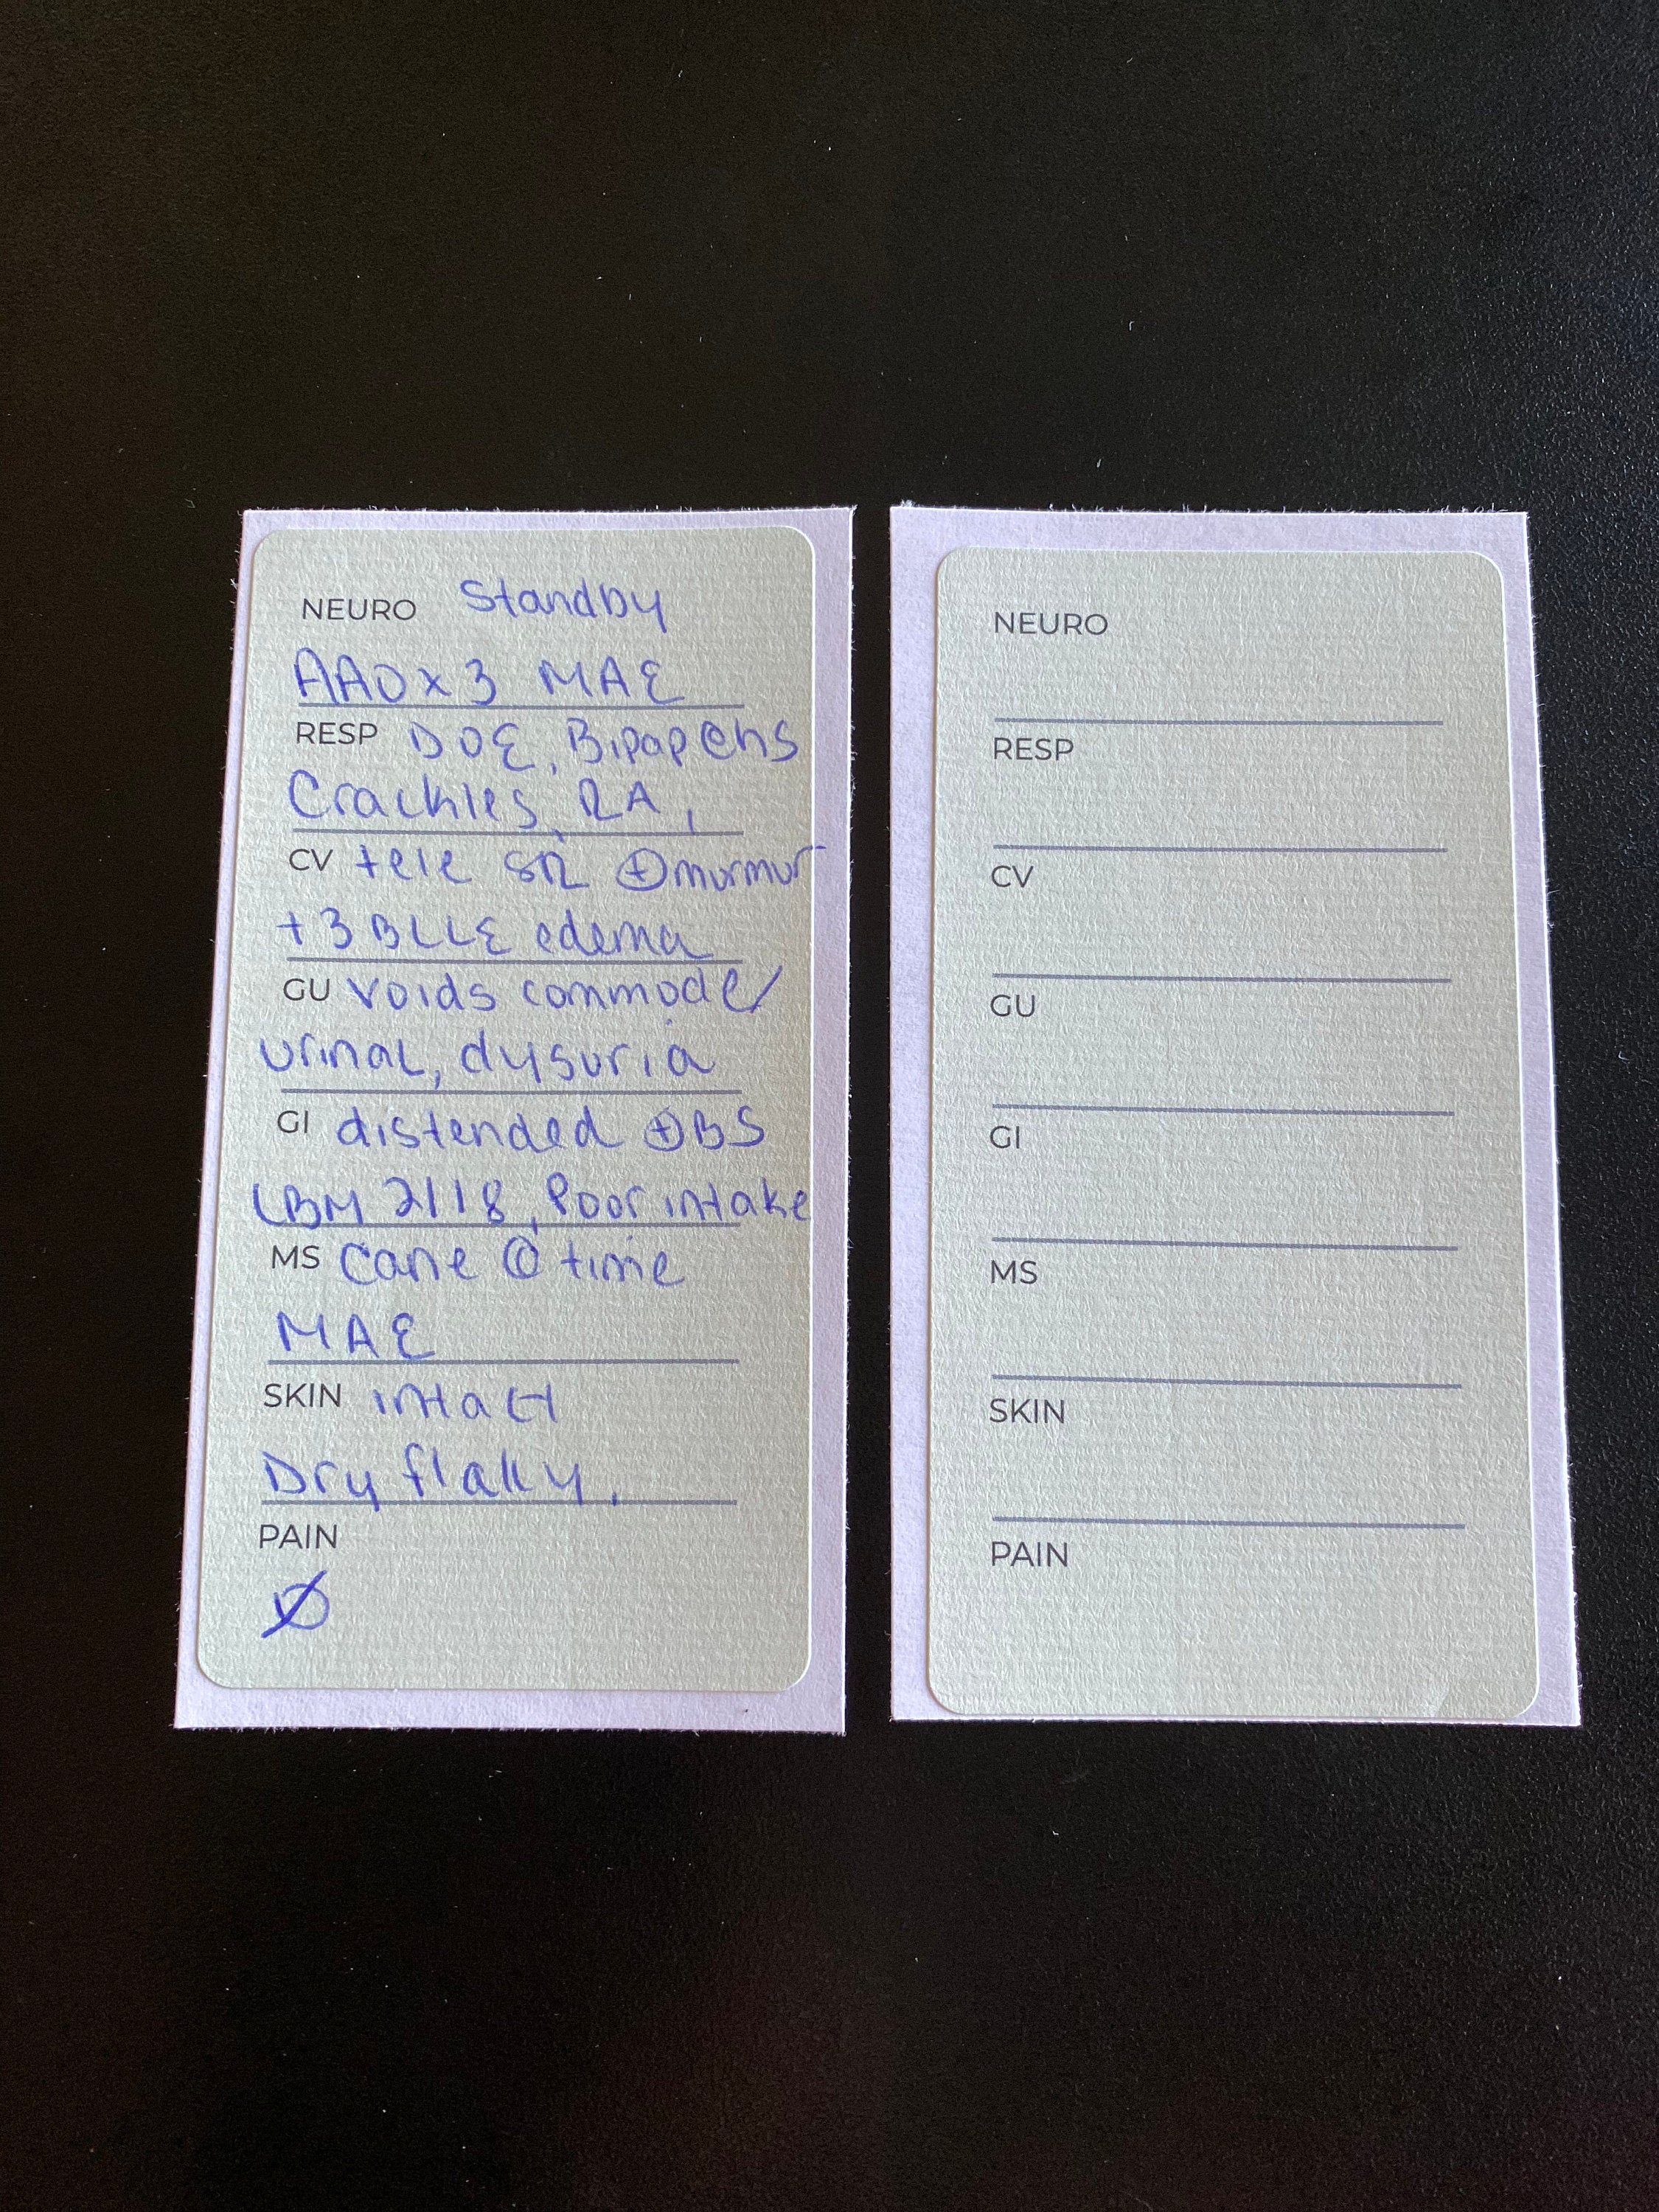 NEURO Standby
AAOx3 MAE
RESP DOE, Bipap @hs
Crackles, RA,
CV tele SR ⊕murmur
+3 BLLE edema
GU voids commode/
urinal, dysuria
GI distended ⊕BS
LBM 2/18, Poor intake
MS Cane @ time
MAE
SKIN intact
Dry flaky,
PAIN
Ø
NEURO
RESP
CV
GU
GI
MS
SKIN
PAIN